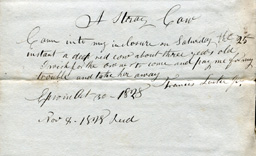 A Stray Cow
Came into my inclosure on Saturday the 25
instant a deep red cow about three years old
I wish for the owner to come and pay me for my
trouble and take her away
Francis
Oct 30 - 1828
Nov 4. 1828 Recd